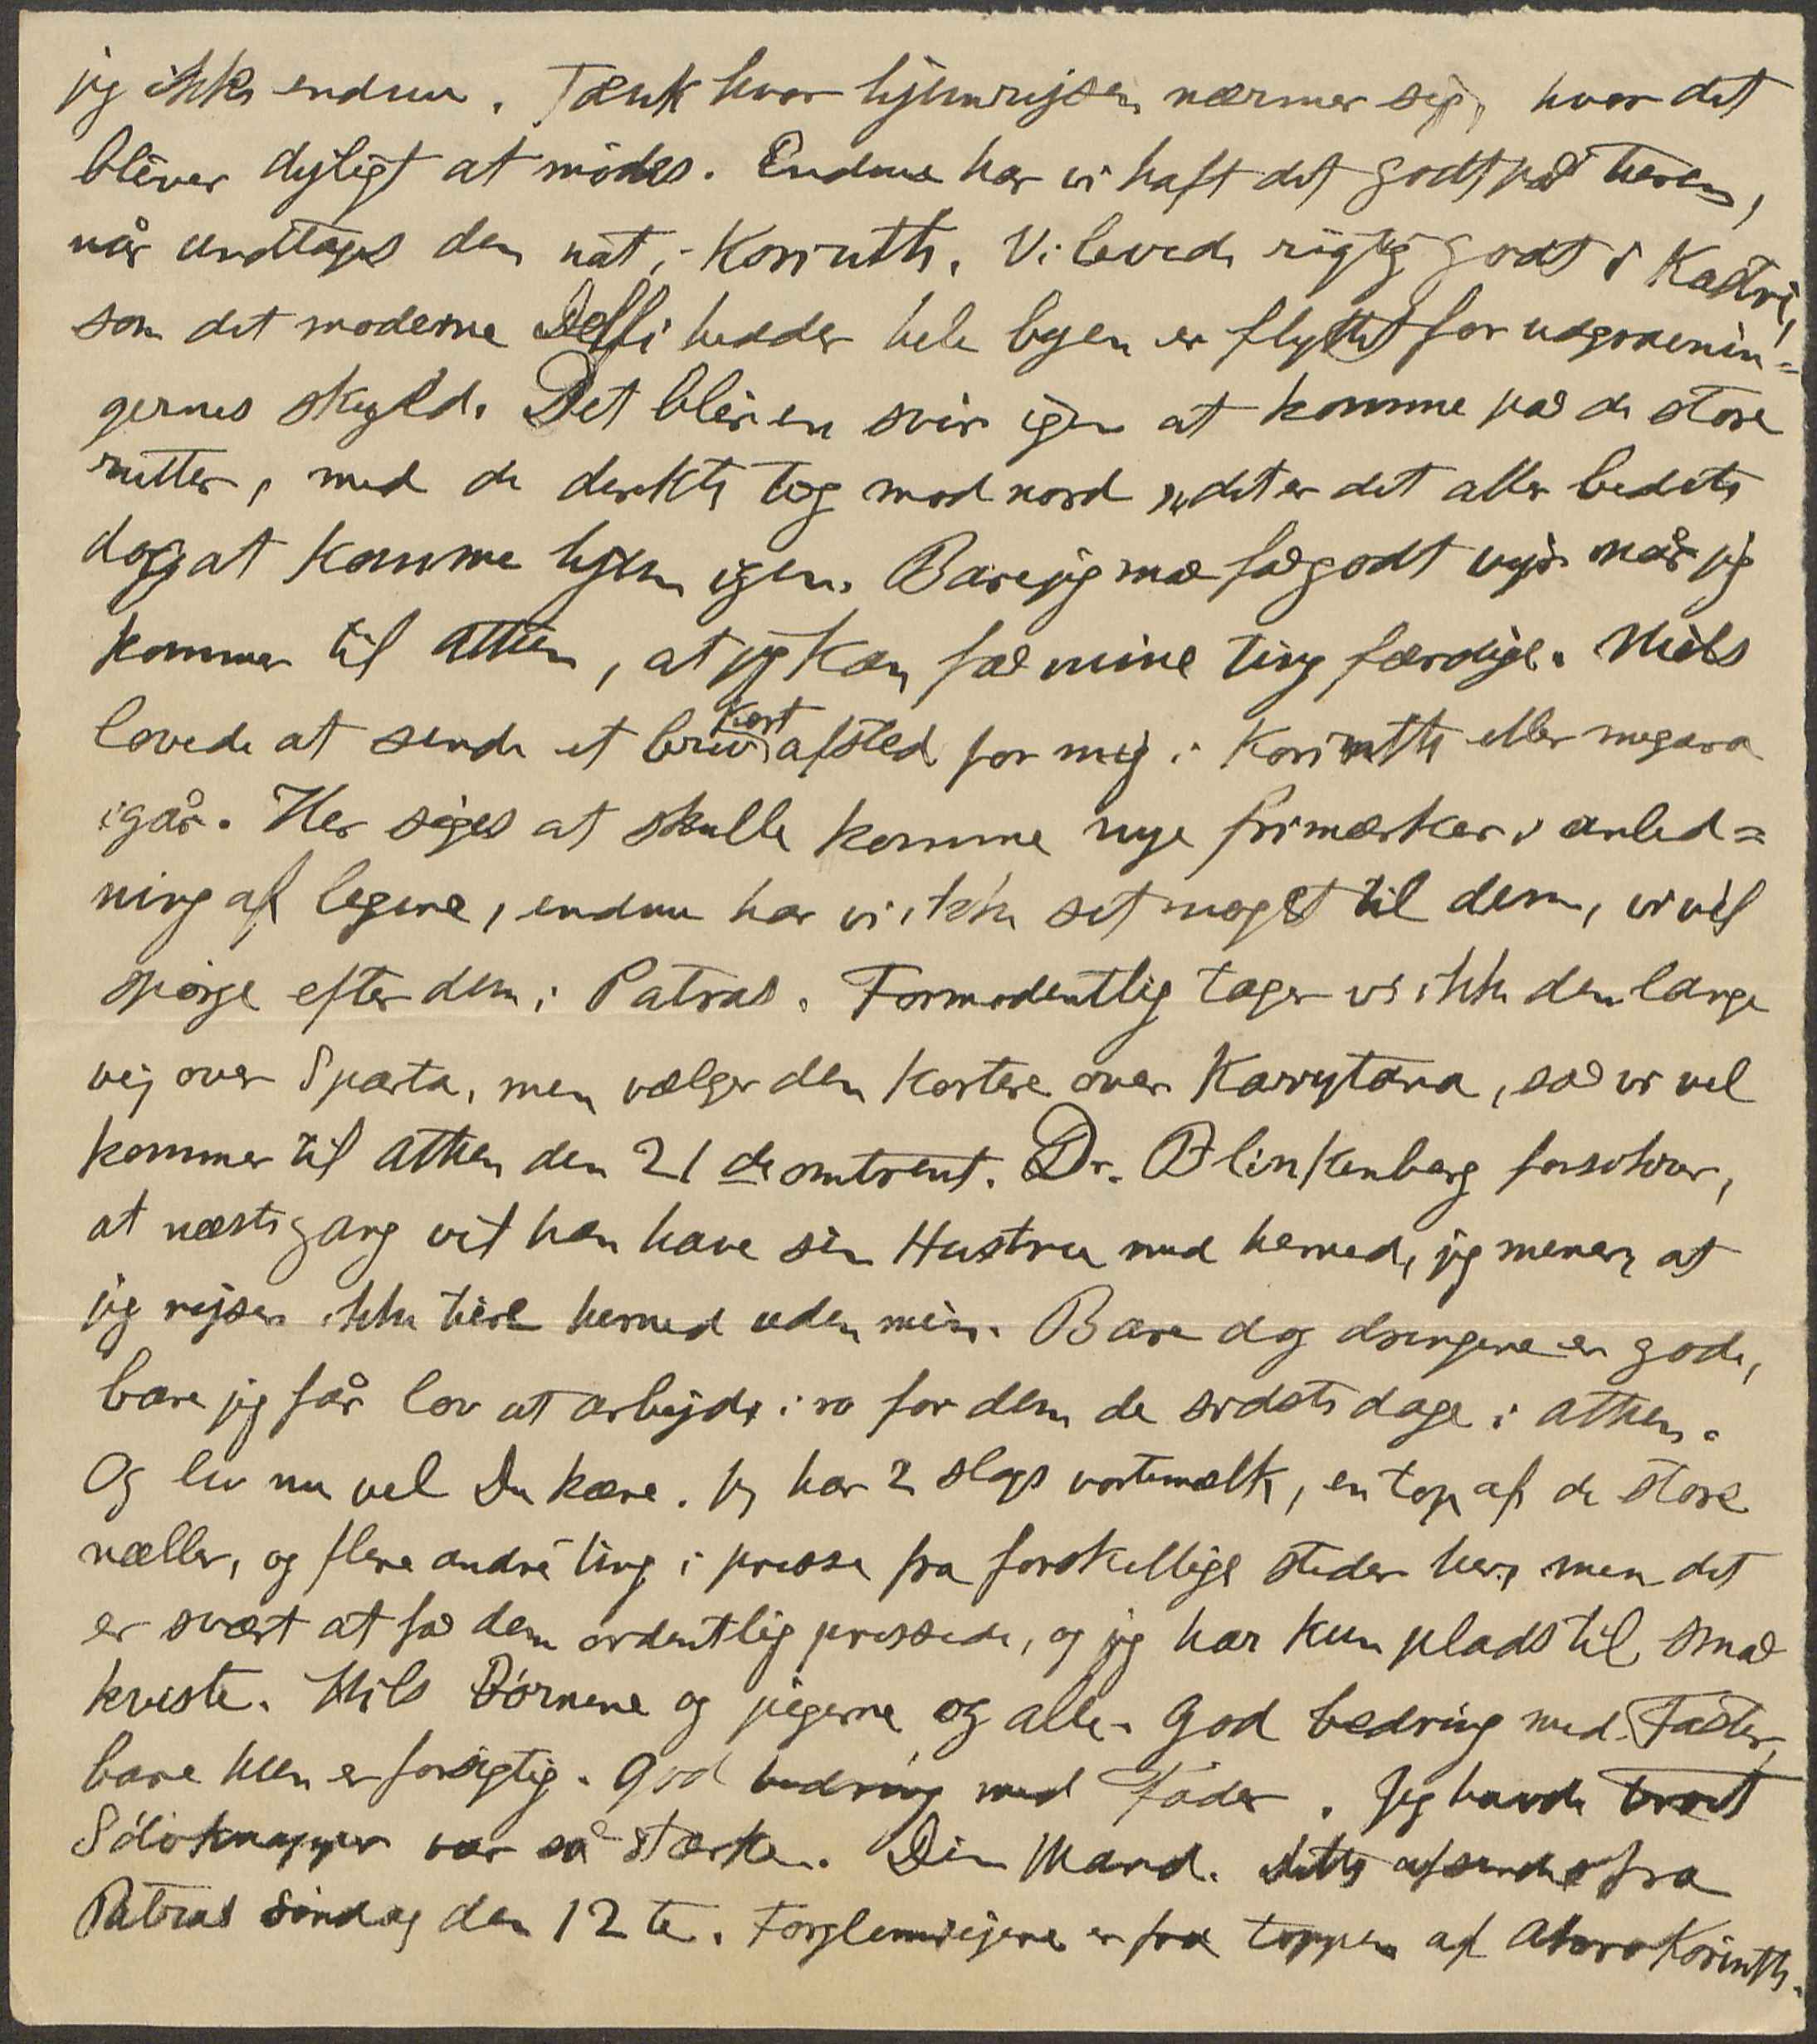 jeg ikke endnu. Tænk hvor hjemrejsen nærmer sig, hvor det
bliver dejligt at mødes. Endnu har vi haft det godt på turen,
når undtages den nat i Korinth. Vi levede rigtig godt i Kastri,
som det moderne Delfi hedder hele byen er flyttet for udgravnin=
gernes skyld. Det bliver en svir igen at komme på de store
rutter, med de direkte tog mod nord, det er det aller bedste
dog at komme hjem igen. Bare jeg må få godt vejr når jeg
kommer til Athen, at jeg kan få mine ting færdige. Niels
lovede at sende et brev kort afsted for mig i Korinth eller megara
igår. Her siges at skulle komme nye frimærker i anled=
ning af legene, endnu har vi ikke set noget til dem, vi vil
spørge efter dem i Patras. Formodentlig tager vi ikke den lange
vej over Sparta, men vælger den kortere over Karytæna, så vi vel
kommer til Athen den 21 de omtrent. Dr. Blinkenberg forsikrer,
at næste gang vil han have sin Hustru med herned, jeg mener, at
jeg rejser ikke tiere herned uden min. Bare dog drengene er gode,
bare jeg får lov at arbejde i ro for dem de sidste dage i Athen.
Og lev nu vel Du kære. Jeg har 2 slags vortemælk, en top af de store
nælder, og flere andre ting i presse fra forskellige steder her, men det
er svært at få dem ordentlig pressede, og jeg har kun plads til små
kviste. Hils Børnene og pigerne og alle. God bedring med Faster,
bare hun er forsigtig. God bedring med Fader. Jeg havde troet
Sølvknapper var så stærke. Din Mand. Dette afsendes fra
Patras Søndag den 12 te. Forglemmigejerne er fra toppen af Akrokorinth.